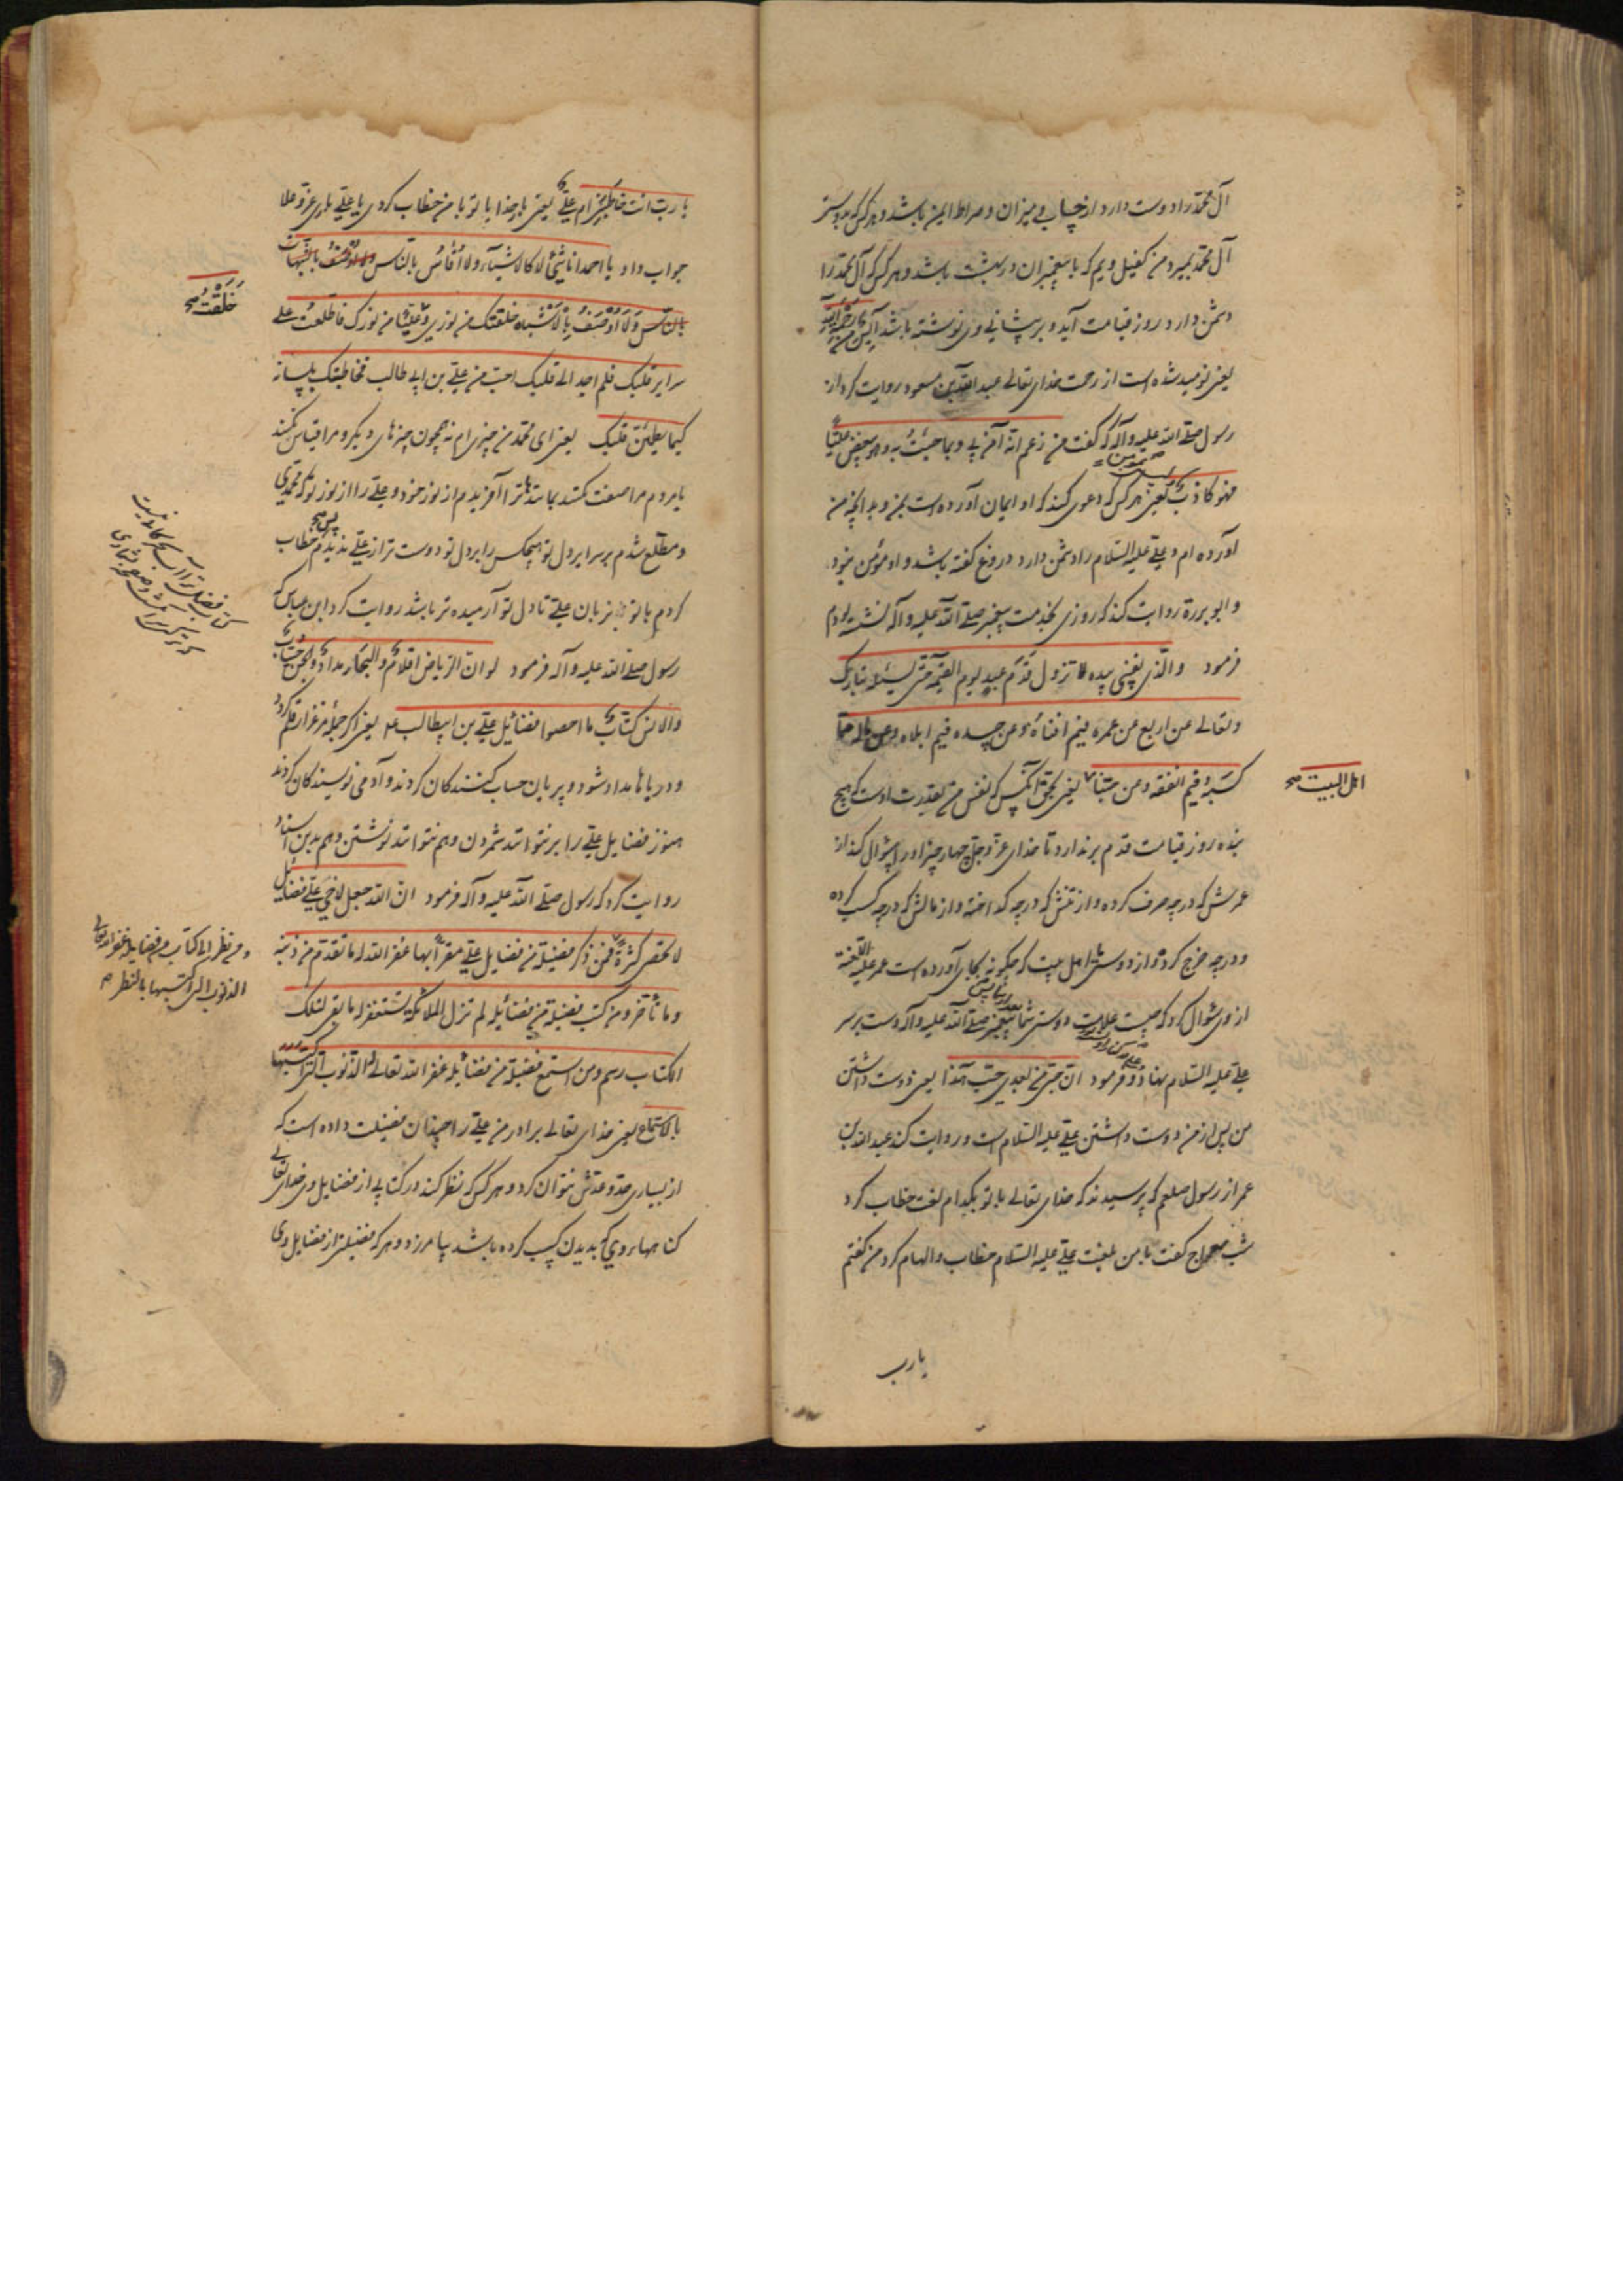 آل محمد را دوست دارد از حساب و میزان و صراط ایمن باشد و هر کس که بر دوستی
آل محمد بمیرد من کفیل ویم که با پیغمبران در بهشت باشد و هر کس که آل محمد را
دشمن دارد روز قیامت آید و بر پیشانی وی نوشته باشد آیس من رحمة الله
یعنی نومید شده است از رحمت خدای تعالی عبدالله بن مسعود روایت کرد از
رسول صلی الله علیه و آله که گفت من زعم انه آمن بی و بما جئت به و هو یبغض علیا
فهو کاذب لیس بمؤمن یعنی هر کس که دعوی کند که او ایمان آورده است بمن و بدانچه من
آورده ام و علی علیه السلام را دشمن دارد دروغ گفته باشد و او مؤمن نبود
و ابو بردة روایت کند که روزی بخدمت پیغمبر صلی الله علیه و آله نشسته بودم
فرمود والذی نفسی بیده لا تزول قدم عبد یوم القیمة حتی یسئله تبارک
و تعالی عن اربع عن عمره فیم افناه و عن جسده فیم ابلاه و عن ماله مما
کسبه و فیم انفقه و عن حبنا یعنی بحق آنکس که نفس من بقدرت اوست که هیچ
اهل البیت صح
بنده روز قیامت قدم بر ندارد تا خدای عز و جل چهار چیز از او سؤال کند از
عمرش که در چه صرف کرده و از تنش که در چه گداخته و از مالش که در چه کسب کرده
و در چه خرج کرده و از دوستی ما اهل بیت که چگونه بجای آورده است عمر علیه اللعنة
از وی سؤال کرد که چیست علامت دوستی شما بعد از شما پس پیغمبر صلی الله علیه و آله دست بر سر
علی علیه السلام نهاد و فرمود ان حبی من بعدی حب هذا یعنی دوست داشتن
من پس از من دوست داشتن علی علیه السلام است و روایت کند عبدالله بن
عمر از رسول صلعم که پرسیدند که خدای تعالی با تو بکدام لغت خطاب کرد
شب معراج گفت با من بلغت علی علیه السلام خطاب و الهام کرد من گفتم
یا رب
یا رب انت خاطبتنی ام علی یعنی بار خدایا تو با من خطاب کردی یا علی باری عز و علا
جواب داد یا احمد انا شیئ لا کالاشیاء ولا اقاس بالناس ولا اوصف بالشبهات
بالناس ولا اوصف بالاشباه خلقتک من نوری و علیا من نورک فاطلعت علی
خلقت صح
سرایر قلبک فلم اجد الی قلبک احب من علی بن ابی طالب فخاطبتک بلسانه
کیما یطمئن قلبک یعنی ای محمد من چیزی ام نه همچون چیزهای دیگر و مرا قیاس نکنند
بامردم مرا صفت نکنند بمانندها ترا آفریدم از نور خود و علی را از نور تو که محمدی
و مطلع شدم بر سرایر دل تو هیچکس را بر دل تو دوست تر از علی ندیدم پس خطاب
کردم با تو بزبان علی تا دل تو آرمیده تر باشد روایت کرد ابن عباس که
رسول صلی الله علیه و آله فرمود لو ان الریاض اقلام و البحار مداد و الجن حساب
والانس کتاب ما احصوا فضایل علی بن ابیطالب ع یعنی اگر جمله مرغزار قلم گردد
و دریاها مداد شود و پریان حساب کنندگان گردند و آدمی نویسندگان گردند
هنوز فضایل علی را بر نتوانند شمردن و هم نتوانند نوشتن و هم بدین اسناد
روایت کرد که رسول صلی الله علیه و آله فرمود ان الله جعل لاخی علی فضایل
لا تحصی کثرة فمن ذکر فضیلة من فضایل علی مقرا بها غفر الله له ما تقدم من ذنبه
و ما تأخر و من کتب فضیلة من فضائله لم تزل الملائکة تستغفر له ما بقی لتلک
الکتاب رسم و من استمع فضیلة من فضائله غفر الله تعالی له الذنوب التی اکتسبها
و من نظر الی کتاب من فضایله غفر الله تعالی
الذنوب التی اکتسبها بالنظر
بالاستماع یعنی خدای تعالی برادر من علی را چندان فضیلت داده است که
از بسیاری حد و عدش نتوان کرد و هر کس که نظر کند در کتابی از فضایل وی خدای تعالی
گناهها روی که بدیدن کسب کرده باشد بیامرزد و هر که فضیلتی از فضایل وی
کتاب فضل ترا آب بحر کافی نیست
که تر کنی سر انگشت و صفحه بشماری